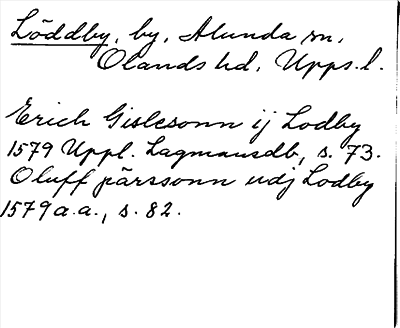 Löddby, by, Alunda sn,
Olands hd, Upps. l.
Erich Gislesonn ij Lodby
1579 Uppl. Lagmansdb, s. 73.
Oluff pärssonn udj Lodby
1579 a.a., s. 82.